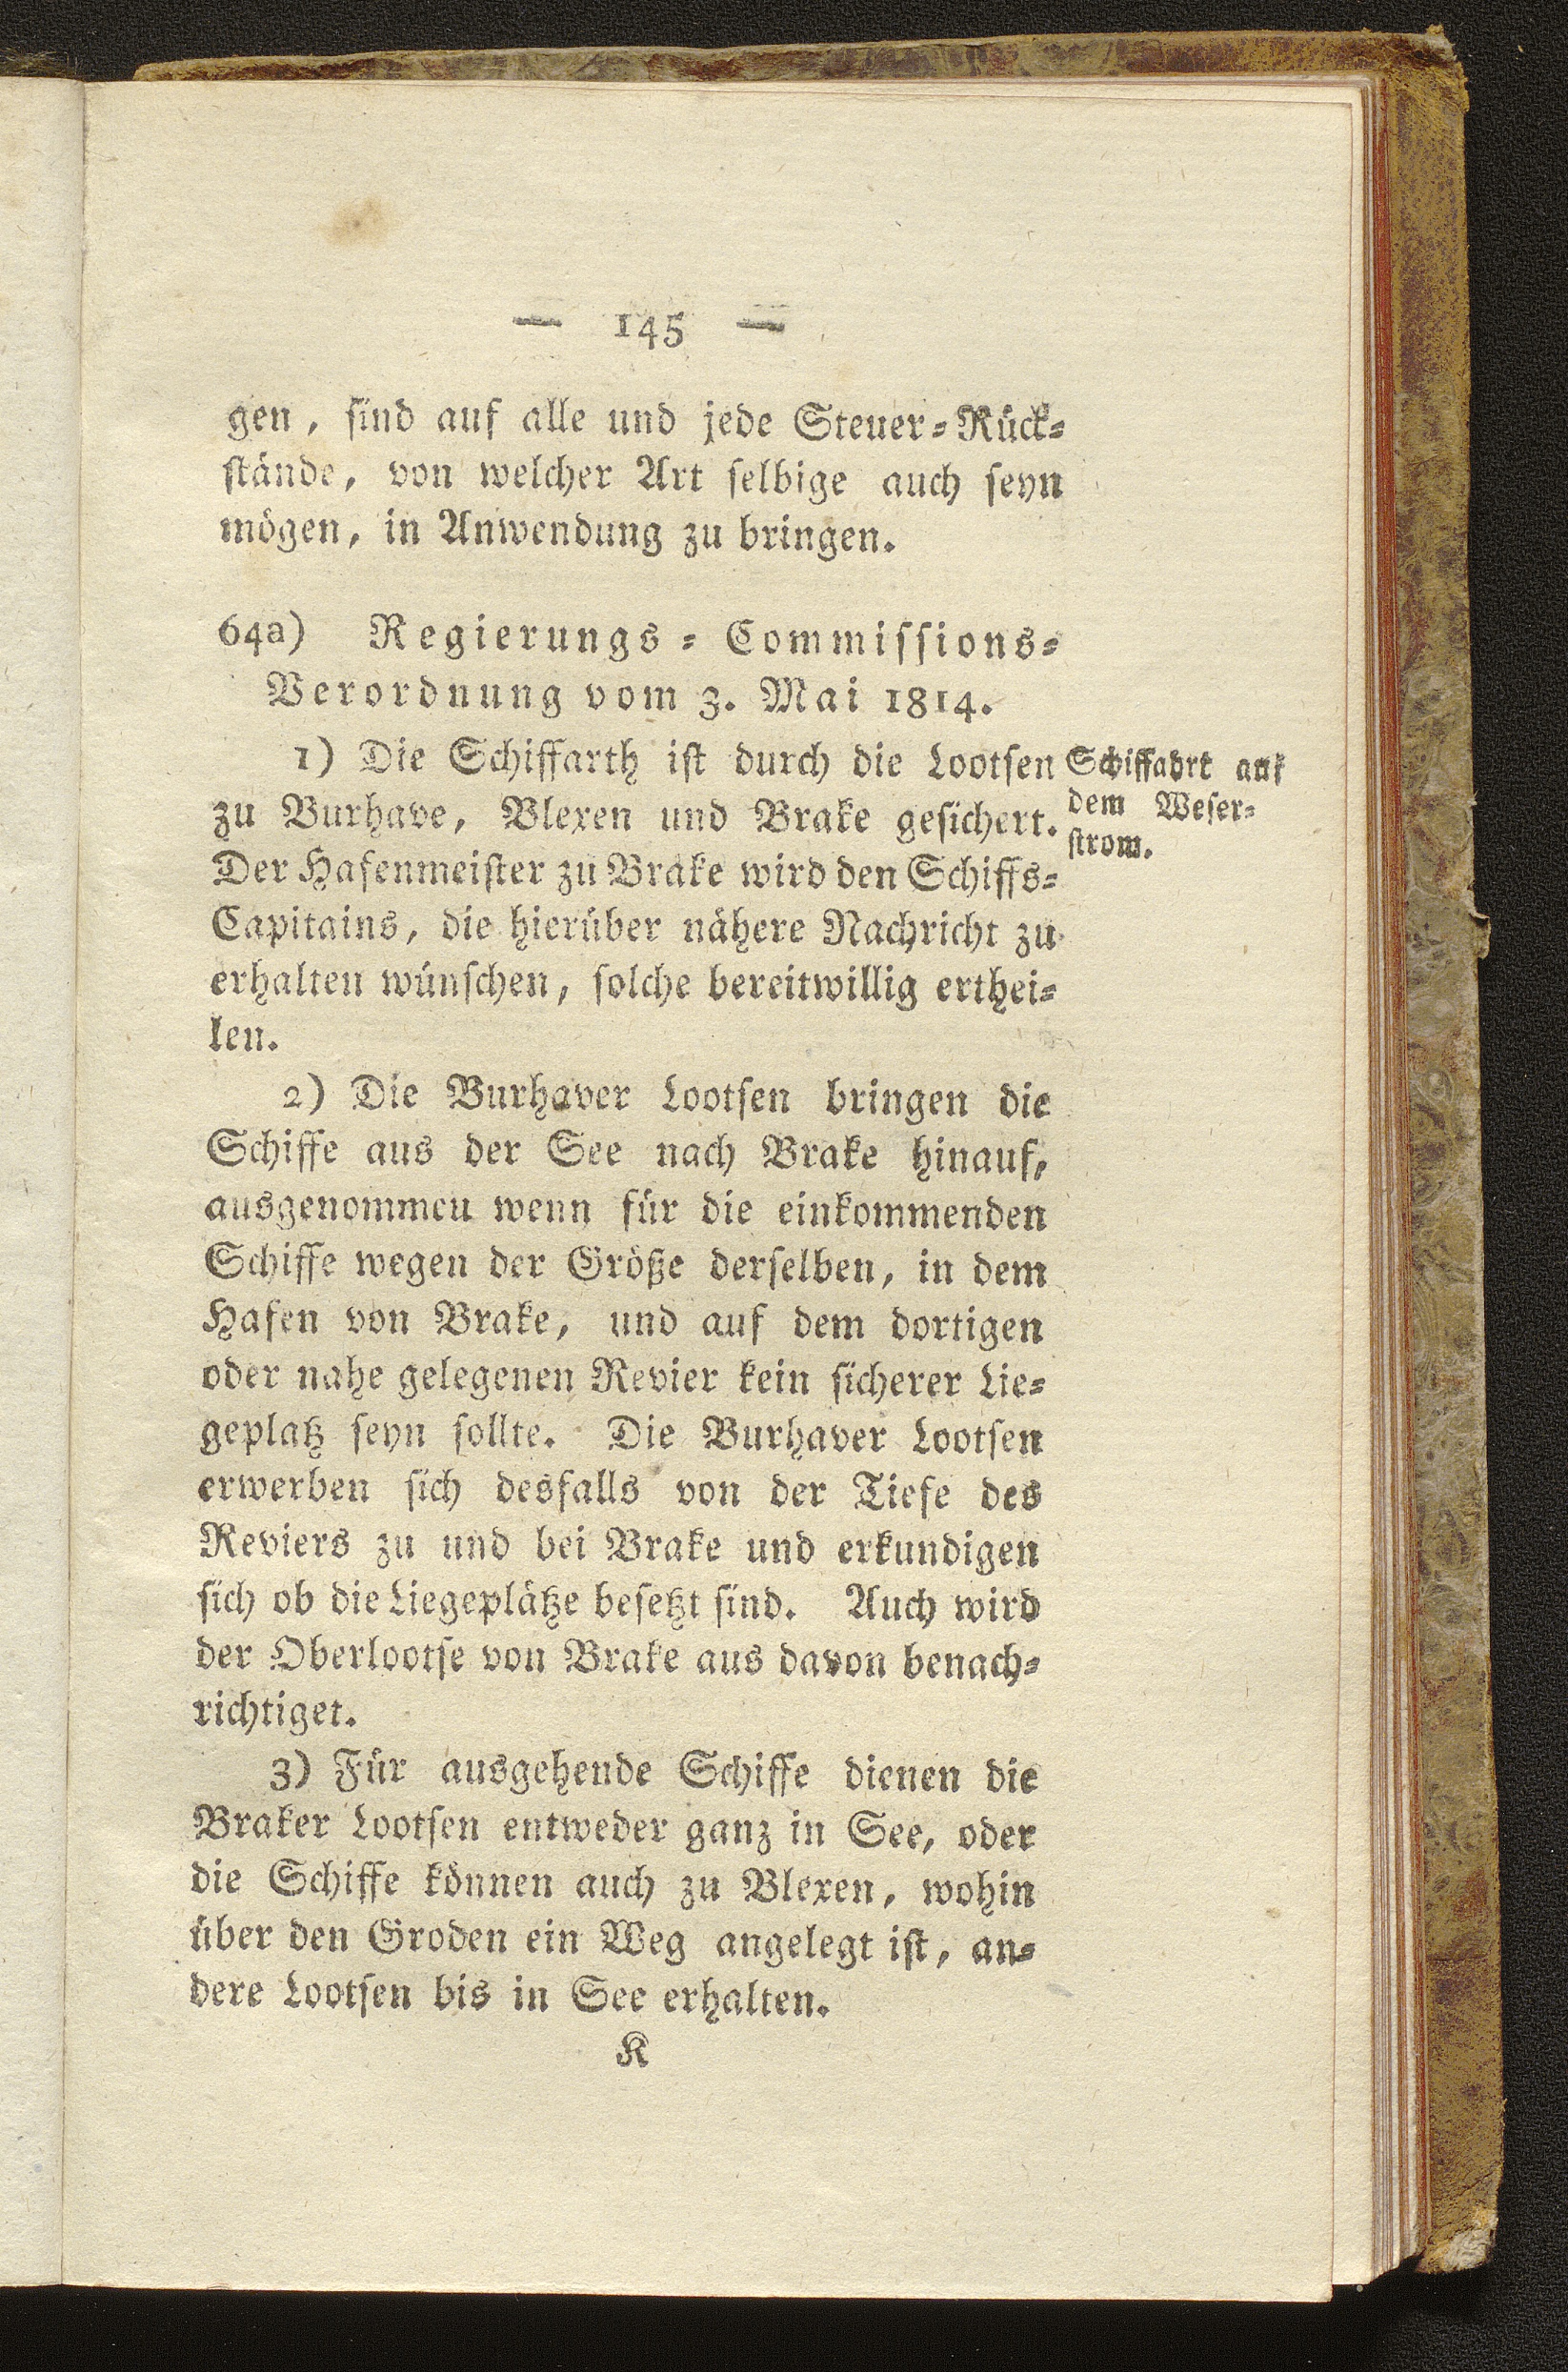 — 145 —
gen, sind auf alle und jede Steuer=Rück=
stände, von welcher Art selbige auch seyn
mögen, in Anwendung zu bringen.
64a) Regierungs=Commissions=
Verordnung vom 3. Mai 1814.
1) Die Schiffarth ist durch die Lootsen
zu Burhave, Blexen und Brake gesichert.
Der Hafenmeister zu Brake wird den Schiffs=
Capitains, die hierüber nähere Nachricht zu
erhalten wünschen, solche bereitwillig erthei=
len.
Schiffahrt auf
dem Weser=
strom.
2) Die Burhaver Lootsen bringen die
Schiffe aus der See nach Brake hinauf,
ausgenommeu wenn für die einkommenden
Schiffe wegen der Größe derselben, in dem
Hafen von Brake, und auf dem dortigen
oder nahe gelegenen Revier kein sicherer Lie=
geplatz seyn sollte. Die Burhaver Lootsen
erwerben sich desfalls von der Tiefe des
Reviers zu und bei Brake und erkundigen
sich ob die Liegeplätze besetzt sind. Auch wird
der Oberlootse von Brake aus davon benach=
richtiget.
3) Für ausgehende Schiffe dienen die
Braker Lootsen entweder ganz in See, oder
die Schiffe können auch zu Blexen, wohin
über den Groden ein Weg angelegt ist, an=
dere Lootsen bis in See erhalten.
K